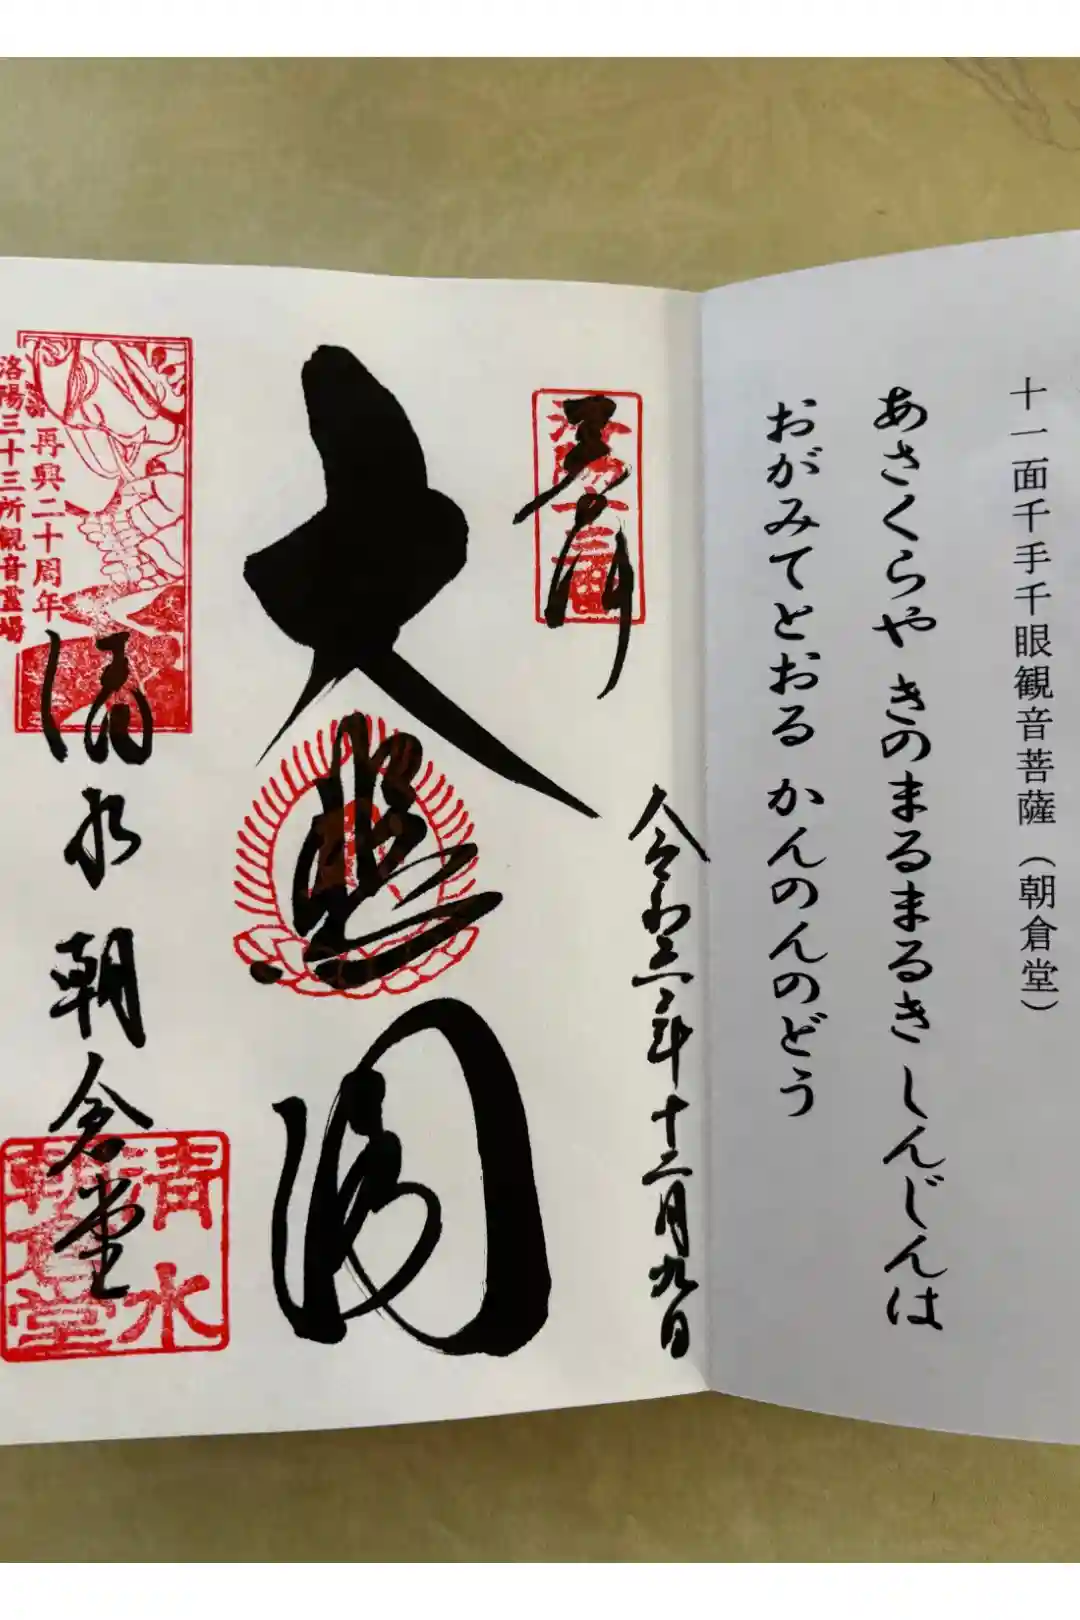 十一面千手千眼観音菩薩（朝倉堂）
あさくらや きのまるまるき しんじんは
おがみてとおる かんのんのどう
奉拝
洛陽十三番
令和三年十二月九日
大悲閣
再興二十周年
洛陽三十三所観音霊場
清水朝倉堂
清水
朝倉堂